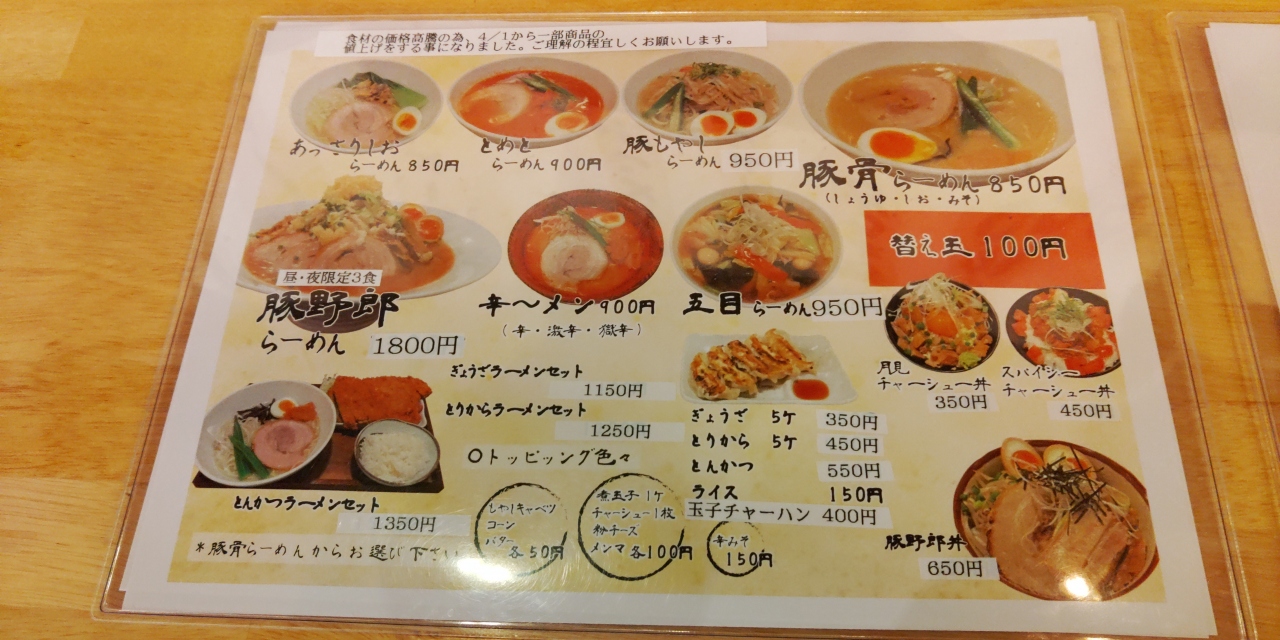 食材の価格高騰の為、4／1から一部商品の
値上げをする事になりました。ご理解の程宜しくお願いします。
あっさりしお
らーめん 850円
とめと
らーめん 900円
豚もやし
らーめん 950円
豚骨らーめん 850円
(しょうゆ・しお・みそ)
替え玉 100円
昼・夜限定3食
豚野郎
らーめん 1800円
辛〜メン 900円
(辛・激辛・獄辛)
五目らーめん 950円
月見
チャーシュー丼
350円
スパイシー
チャーシュー丼
450円
ぎょうざラーメンセット
1150円
とりからラーメンセット
1250円
とんかつラーメンセット
1350円
＊豚骨らーめんからお選び下さい
○トッピング色々
もやしキャベツ
コーン
バター
各50円
煮玉子 1ケ
チャーシュー 1枚
粉チーズ
メンマ 各100円
辛みそ
150円
ぎょうざ 5ケ 350円
とりから 5ケ 450円
とんかつ 550円
ライス 150円
玉子チャーハン 400円
豚野郎丼
650円